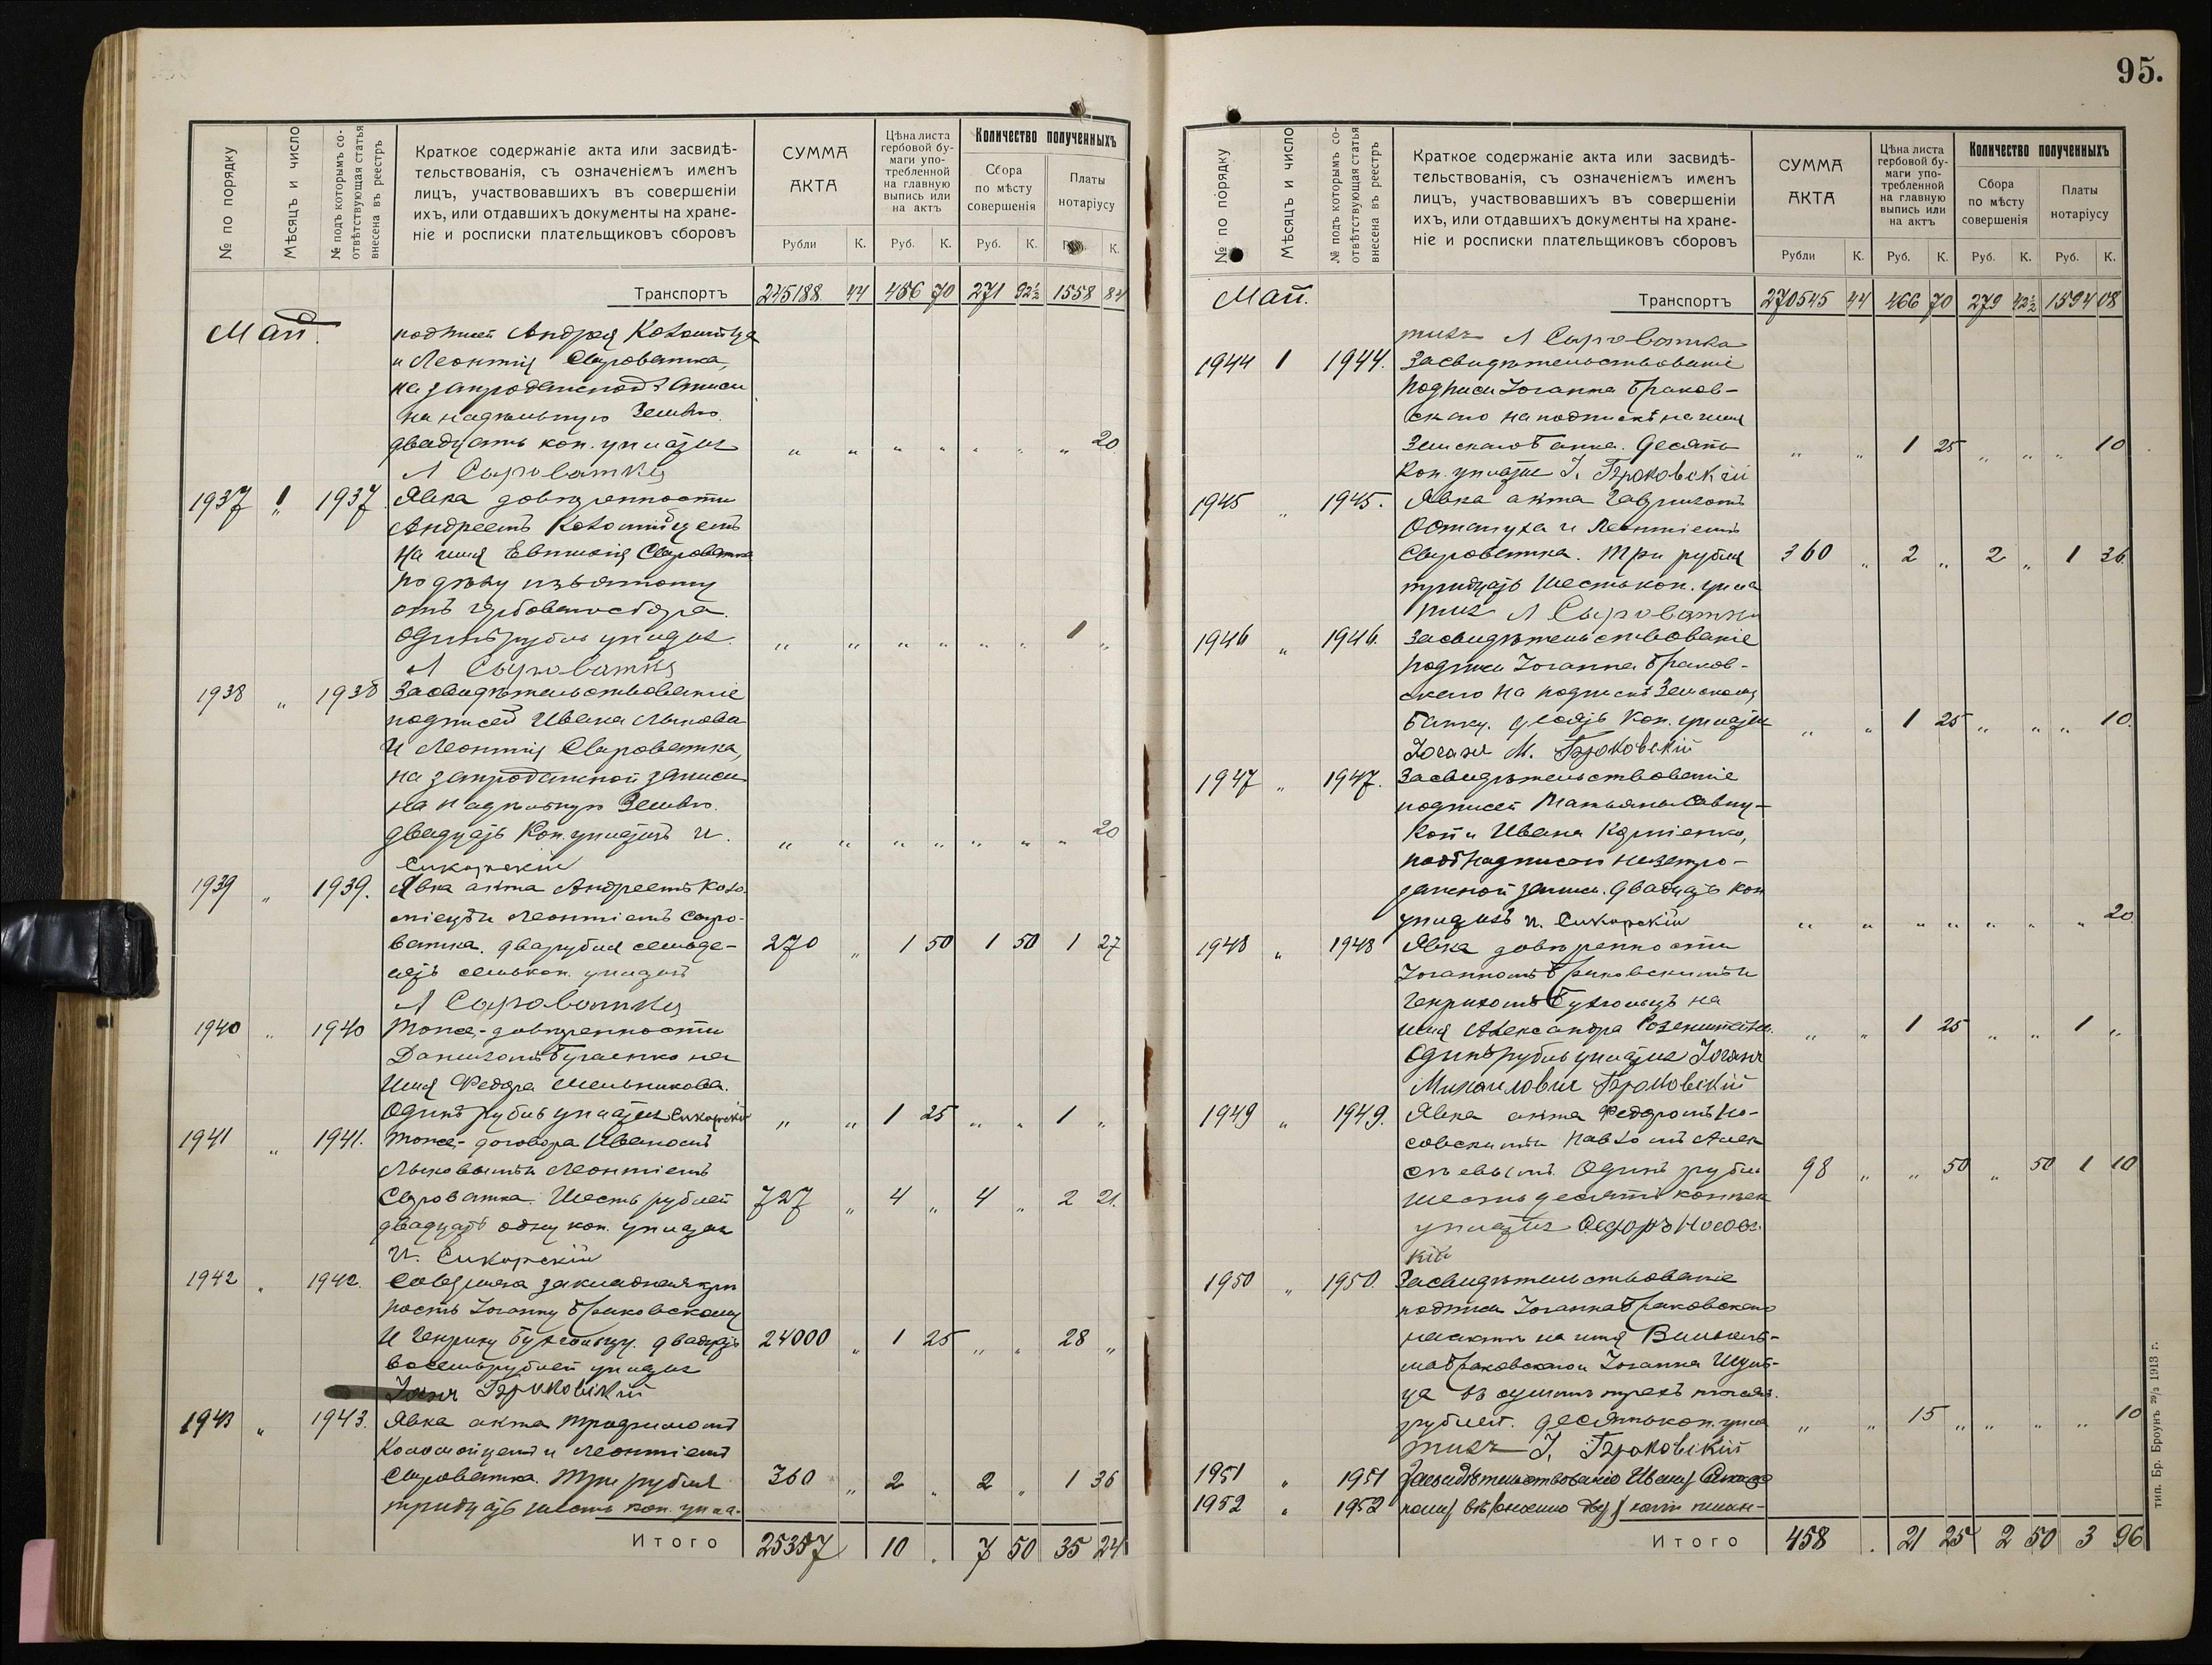 95.
№ по порядку
Мѣсяцъ и число
№ подъ которымъ со-
отвѣтствующая статья
внесена въ реестръ
Краткое содержаніе акта или засвидѣ-
тельствованія, съ означеніемъ именъ
лицъ, участвовавшихъ въ совершеніи
ихъ, или отдавшихъ документы на хране-
ніе и росписки плательщиковъ сборовъ
СУММА
АКТА
Рубли К.
Цѣна листа
гербовой бу-
маги упо-
требленной
на главную
выпись или
на актъ
Руб. К.
Количество полученныхъ
Сбора
по мѣсту
совершенія
Руб. К.
Платы
нотаріусу
К.
Транспортъ 245188 44 456 70 271 92½ 1558 84
Май.
подписей Андрея Коломійца
и Леонтія Сыроватка,
на запроданной записи
на надѣльную землю.
двадцать коп. уплатилъ „ „ „ „ „ „ „ 20
Л Сыроватка
1937 1 1937. Явка довѣренности
Андреемъ Коломійцемъ
на имя Евтихія Сыроватка
по дѣлу изъятому
отъ гербового сбора.
Одинъ рубль уплатил. „ „ „ „ „ „ 1 „
Л Сыроватка
1938 „ 1938 Засвидѣтельствованіе
подписей Ивана Лысова
и Леонтія Сыроватка,
на запроданной записи
на надѣльную землю.
двадцать коп. уплатилъ И. „ „ „ „ „ „ „ 20
Сикорскій
1939 „ 1939. Явка акта Андреемъ Коло-
мійцемъ и Леонтіемъ Сыро-
ватка. два рубля семьде- 270 „ 1 50 1 50 1 27
сятъ семь коп. уплатилъ
Л Сыроватка
1940 „ 1940 Тоже, довѣренности
Даниломъ Бугаенко на
имя Федора Мельникова.
Одинъ рубль уплатилъ Сикорскій „ „ 1 25 „ „ 1 „
1941 „ 1941. Тоже, договора Иваномъ
Лысовымъ и Леонтіемъ
Сыроватка. Шесть рублей 727 „ 4 „ 4 „ 2 21.
двадцать одну коп. уплатил
И. Сикорскій
1942 „ 1942. Совершена закладная крѣ
пость Іоганну Браковскому
и Генриху двадцать 24000 „ 1 25 „ „ 28 „
восемь рублей уплатил
Іоганъ Браковскій
1943 „ 1943. Явка акта Трофимомъ
Коломойцемъ и Леонтіемъ
Сыроватка. Три рубля 360 „ 2 „ 2 „ 1 36
тридцать шесть коп. упла-
Итого 25357 10 . 7 50 35 24
№ по порядку
Мѣсяцъ и число
№ подъ которымъ со-
отвѣтствующая статья
внесена въ реестръ
Краткое содержаніе акта или засвидѣ-
тельствованія, съ означеніемъ именъ
лицъ, участвовавшихъ въ совершеніи
ихъ, или отдавшихъ документы на хране-
ніе и росписки плательщиковъ сборовъ
СУММА
АКТА
Рубли К.
Цѣна листа
гербовой бу-
маги упо-
требленной
на главную
выпись или
на актъ
Руб. К.
Количество полученныхъ
Сбора
по мѣсту
совершенія
Руб. К.
Платы
нотаріусу
Руб. К.
Транспортъ 270545 44 466 70 279 42½ 1594 08
Май.
тилъ Л Сыроватка
1944 1 1944. Засвидѣтельствованіе
подписи Іоганна Браков-
скаго на подпискѣ на имя
Земскаго Банка. Десять „ „ 1 25 „ „ „ 10
коп. уплатил І. Браковскій
1945 „ 1945. Явка акта Гавриломъ
Остапуха и Леонтіемъ
Сыроватка. Три рубля 360 „ 2 „ 2 „ 1 36.
тридцать шесть коп. упла
тилъ Л Сыроватка
1946 „ 1946. Засвидѣтельствованіе
подписи Іоганна Браков-
скаго на подпискѣ Земскому
Банку. десять коп. уплатил „ „ 1 25 „ „ „ 10.
Іоганъ М. Браковскій
1947 „ 1947. Засвидѣтельствованіе
подписей Татьяны Савиц-
кой и Ивана Корніенко,
подъ надписью на запро-
данной записи. двадцать коп
уплатилъ И. Сикорскій „ „ „ „ „ „ „ 20
1948 „ 1948 Явка довѣренности
Іоганномъ Браковскимъ и
Генрихомъ на
имя Александра „ „ 1 25 „ „ 1 „
Одинъ рубль уплатил Іоганъ
Михаиловичъ Браковскій
1949 „ 1949. Явка акта Федоромъ Но-
совскимъ и Павломъ Алек
сѣевымъ. Одинъ рубль 98 „ „ 50 „ 50 1 10
шестьдесятъ копѣек
уплатилъ Федоръ Носовс
кій
1950 „ 1950. Засвидѣтельствованіе
подписи Іоганна Браковскаго
на имя Вильгель-
ма Браковскаго и Іоганна Шуль-
ца въ суммѣ трехъ тысяч.
рублей. десять коп. упла „ „ 15 „ „ „ „ 10
тилъ І. Браковскій
1951 „ 1951 Засвидѣтельствованіе Ивану
1952 „ 1952
Итого 458 . 21 25 2 50 3 96
тип. Бр. Броунъ ²⁹/₃ 1913 г.